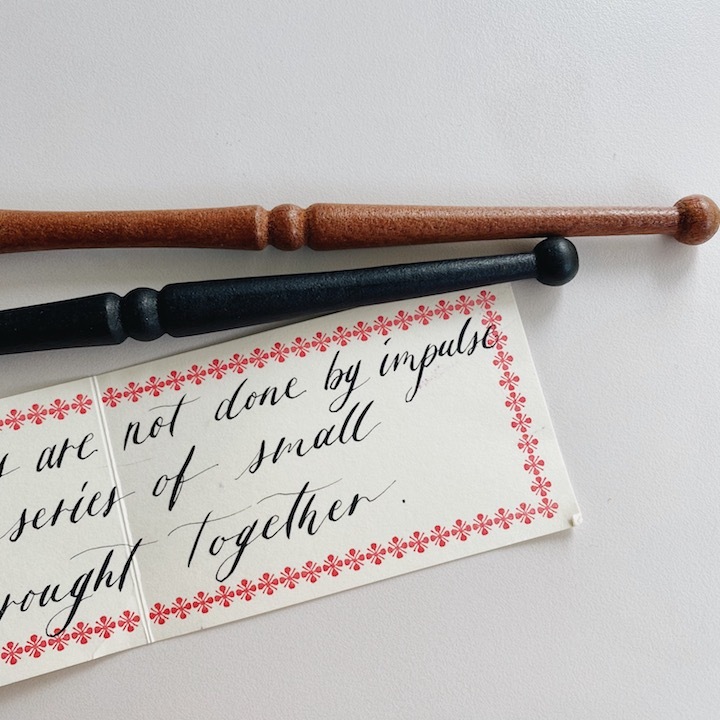 are not done by impulse
series of small
rought together.